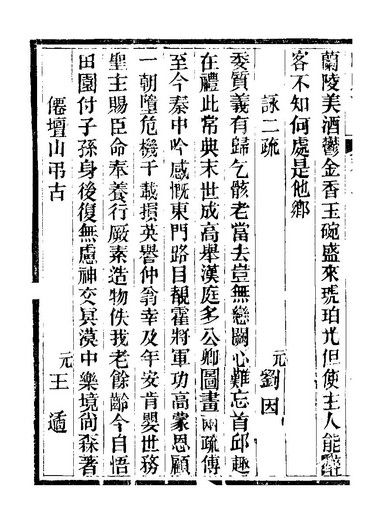 蘭陵美酒鬱金香玉碗盛來琥珀光但使主人能醉
客不知何處是他鄉
詠二疏
元劉因
委質義有歸乞骸老當去豈無戀闕心難忘首邱趣
在禮此常典末世成高舉漢庭多公卿圖畫兩疏傳
至今秦中吟感慨東門路目覩霍將軍功高蒙恩顧
一朝墮危機千載損英譽仲翁幸及年安肯嬰世務
聖主賜臣命奉養行厥素造物佚我老餘齡今自悟
田園付子孫身後復無慮神交冥漠中樂境尙森著
僊壇山弔古
元王遁